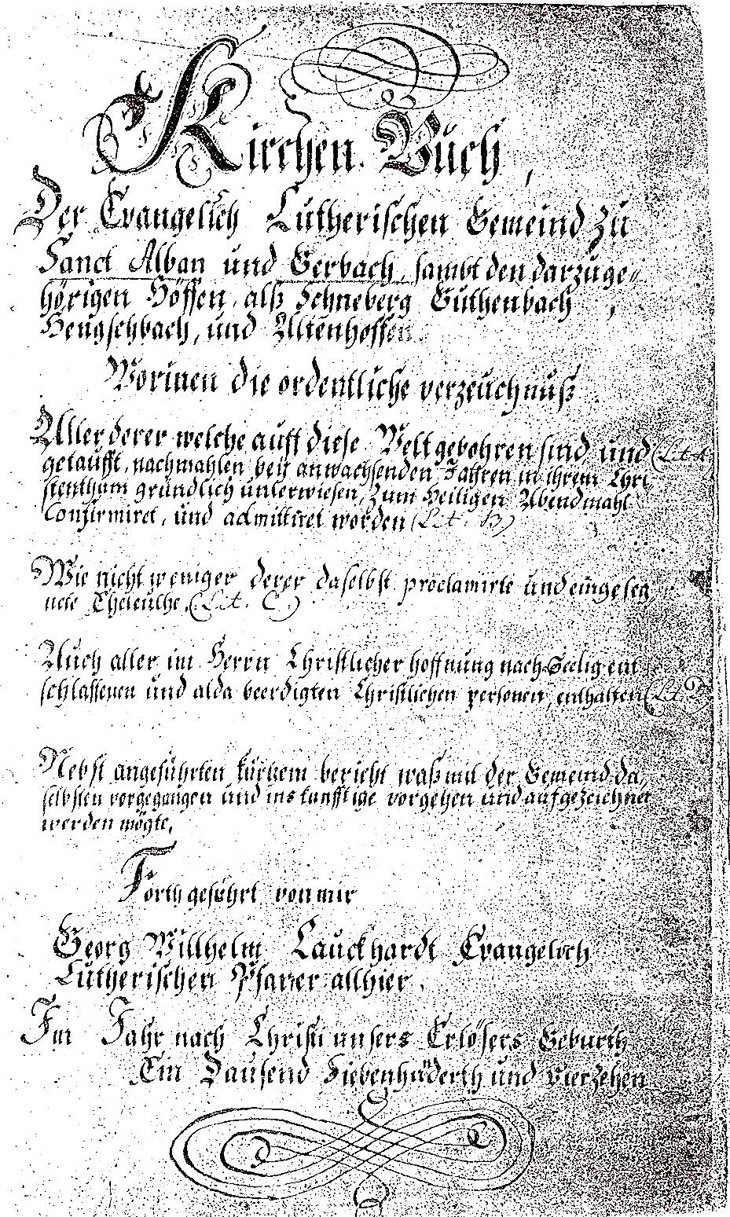 Kirchen Buch,
Der Evangelisch Lutherischen Gemeind zu
Sanct Alban und Gerbach, sambt den darzuge-
hörigen Höffen, alß Schneberg Guthenbach,
Hengschbach, und Altenhoffen
Worinen die ordentliche verzeuchnuß
Aller derer welche auff diese Welt gebohren sind und (Lit. A
getaufft, nachmahlen beÿ anwachsenden Jahren in ihrem Chri
stenthum gründlich unterwiesen, zum Heiligen Abendmahl
Confirmiret, und admittiret worden (Lit. B)
Wie nicht weniger derer daselbst proclamirte und eingeseg
nete Eheleuthe, (Lit. C.)
Auch aller im Herrn Christlicher hoffnung nach Seelig ent
schlaffenen und alda beerdigten Christlichen personen, enthalten (Lit D)
Nebst angeführten kurtzem bericht waß mit der Gemeind da,
selbsten vorgegangen und ins kunfftige vorgehen und aufgezeichnet
werden mögte.
Forth geführt von mir
Georg Willhelm Lauckhardt Evangelisch
Lutherischen Pfarrer allhier.
Im Jahr nach Christi unsers Erlösers Geburth
Ein Dausend Siebenhúderth und vierzehen